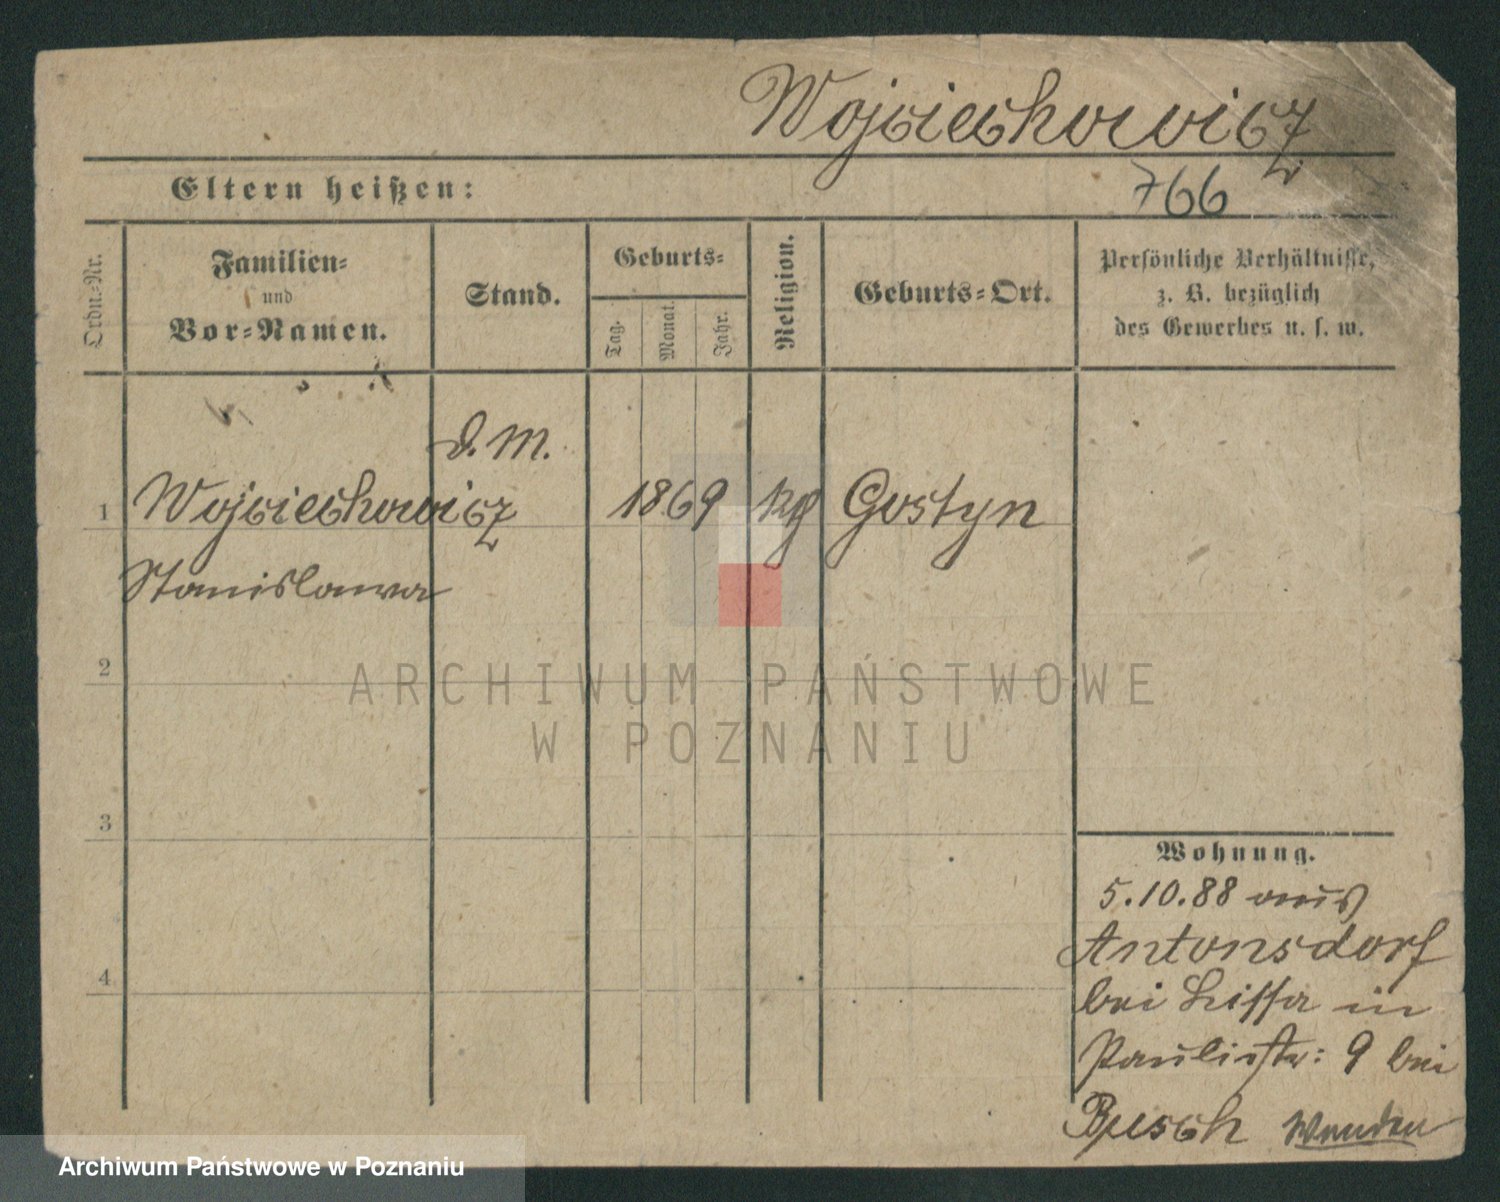 Wojciechowicz
766
Eltern heißen:
Ordn.-Nr.
Familien-
und
Vor-Namen.
Stand.
Geburts-
Tag.
Monat.
Jahr.
Religion.
Geburts-Ort.
Persönliche Verhältnisse,
z. B. bezüglich
des Gewerbes u. s. w.
D. M.
1 Wojciechowicz 1869 kg Gostyn
Stanislawa
2
3
4
Wohnung.
5.10.88 aus
Antonsdorf
bei Lissa in
Paulistr: 9 bei
Busch Wenden
ARCHIWUM PAŃSTWOWE
W POZNANIU
Archiwum Państwowe w Poznaniu